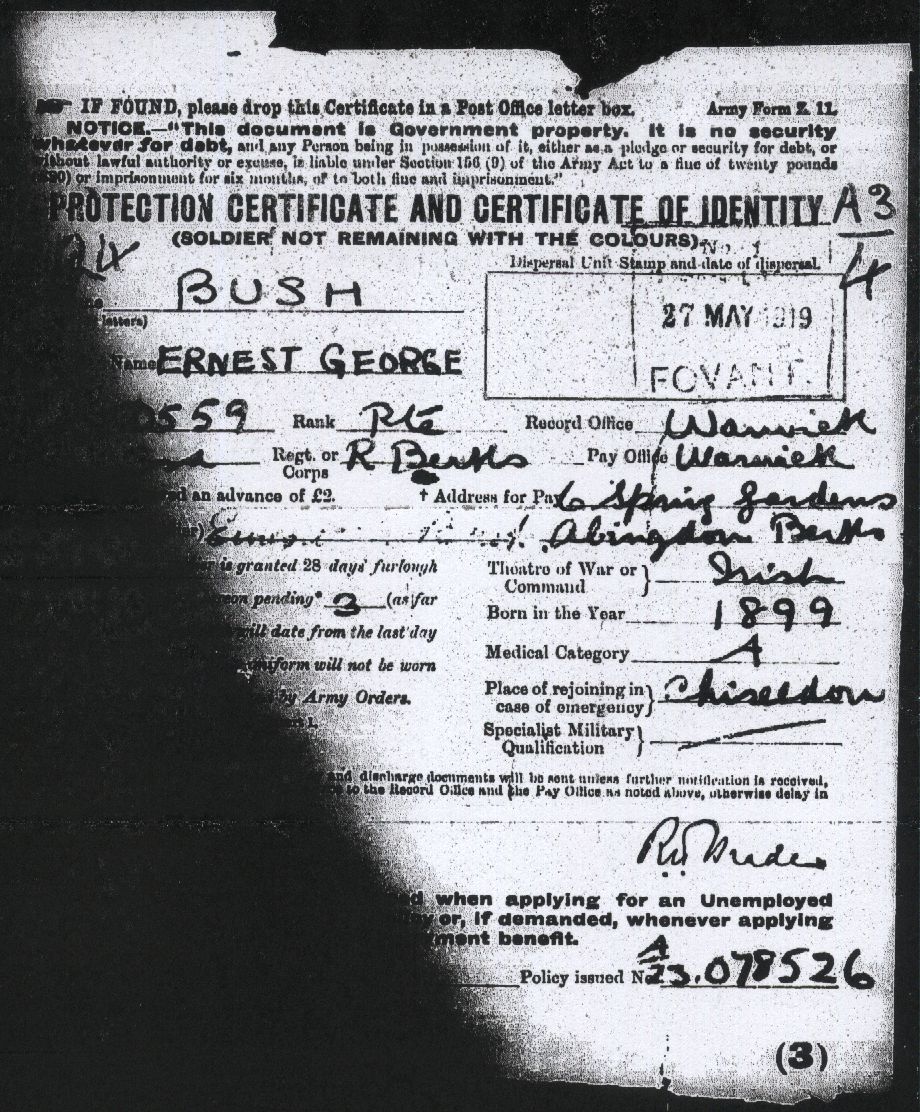 IF FOUND, please drop this Certificate in a Post Office letter box. Army Form Z. 11.
NOTICE.—"This document is Government property. It is no security
whatever for debt, and any Person being in possession of it, either as a pledge or security for debt, or
without lawful authority or excuse, is liable under Section 156 (9) of the Army Act to a fine of twenty pounds
(£20) or imprisonment for six months, or to both fine and imprisonment."
PROTECTION CERTIFICATE AND CERTIFICATE OF IDENTITY A3
(SOLDIER NOT REMAINING WITH THE COLOURS) No. 1 4
Dispersal Unit Stamp and date of dispersal.
BUSH
letters)
27 MAY 1919
FOVANT.
Name ERNEST GEORGE
0559 Rank Pte Record Office Warwick
Regt. or Corps R Berks Pay Office Warwick
an advance of £2. † Address for Pay 6 Spring Gardens
Abingdon Berks
is granted 28 days' furlough
Theatre of War or Command } Irish
pending* 3 (as far
Born in the Year 1899
will date from the last day
Medical Category A
uniform will not be worn
by Army Orders.
Place of rejoining in case of emergency } Chiseldon
Specialist Military Qualification }
and discharge documents will be sent unless further notification is received,
to the Record Office and the Pay Office as noted above, otherwise delay in
when applying for an Unemployed
or, if demanded, whenever applying
benefit.
Policy issued No. A 23.078526
(3)